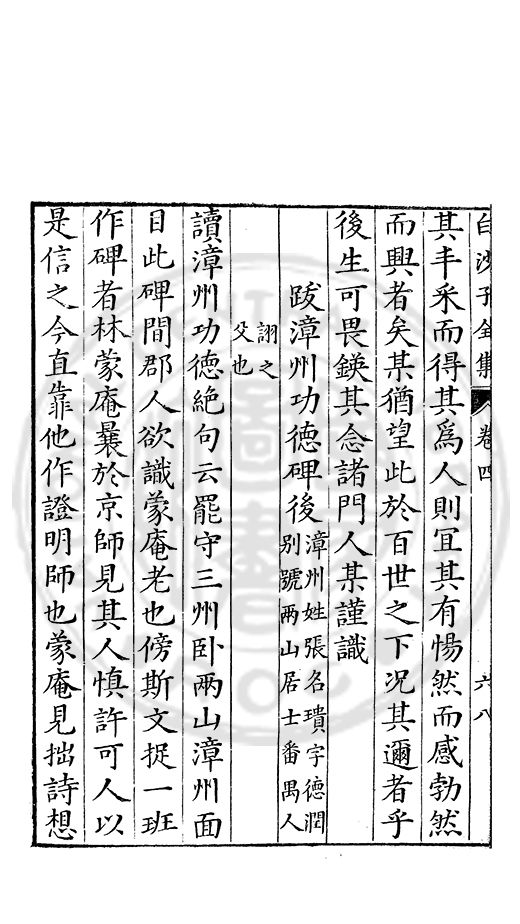 白沙子全集 卷四 六八
其丰采而得其為人則冝其有惕然而感勃然
而興者矣某猶望此於百世之下况其邇者乎
後生可畏鍈其念諸門人某謹識
跋漳州功德碑後 漳州姓張名璝字德潤
别號兩山居士番禺人
詡之
父也
讀漳州功德絶句云罷守三州卧兩山漳州面
目此碑間郡人欲識蒙庵老也傍斯文捉一班
作碑者林蒙庵曩於京師見其人慎許可人以
是信之今直靠他作證明師也蒙庵見拙詩想